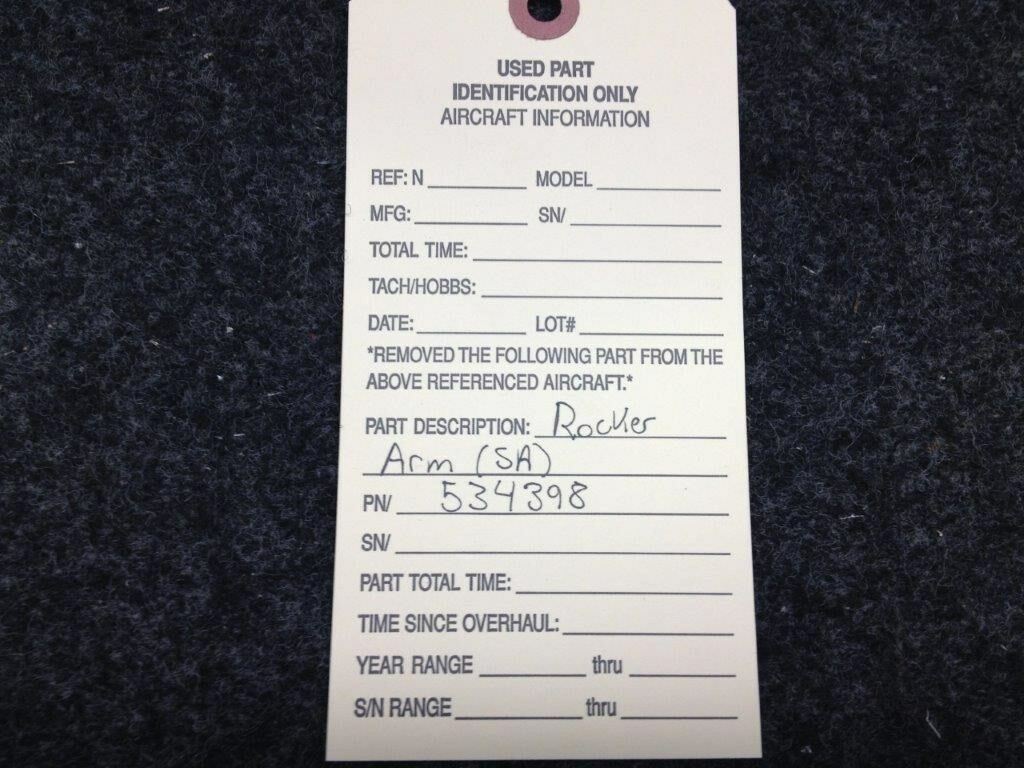 USED PART
IDENTIFICATION ONLY
AIRCRAFT INFORMATION
REF: N MODEL
MFG: SN/
TOTAL TIME:
TACH/HOBBS:
DATE: LOT#
*REMOVED THE FOLLOWING PART FROM THE
ABOVE REFERENCED AIRCRAFT.*
PART DESCRIPTION: Rocker
Arm (SA)
PN/ 534398
SN/
PART TOTAL TIME:
TIME SINCE OVERHAUL:
YEAR RANGE thru
S/N RANGE thru